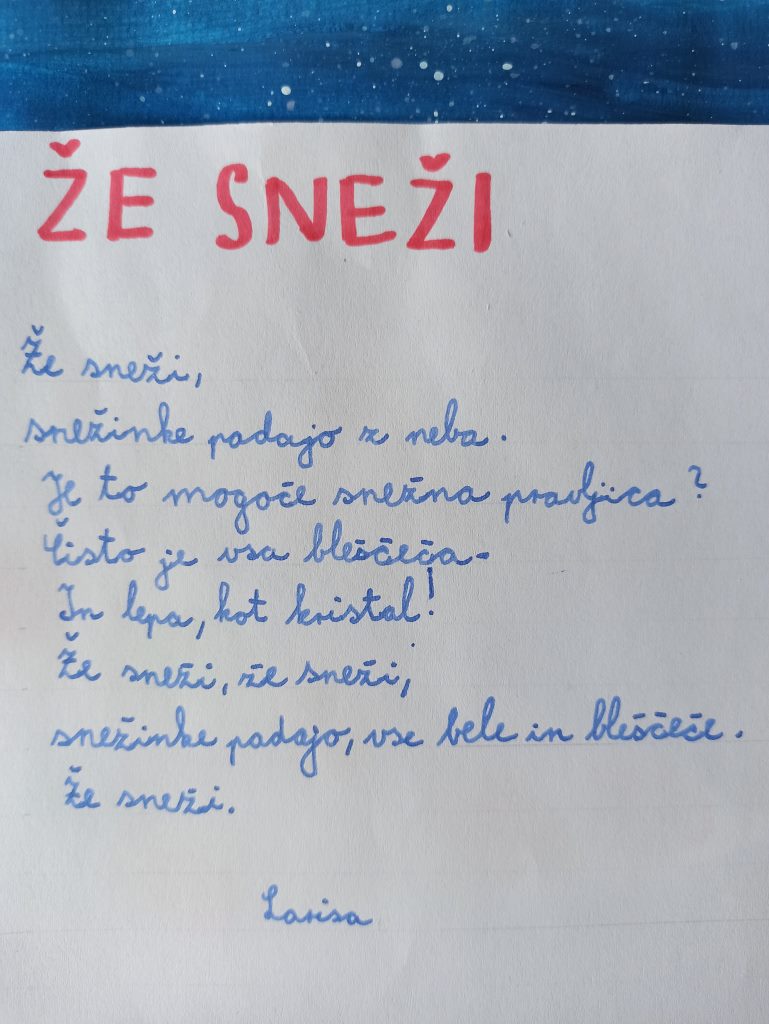 ŽE SNEŽI
Že sneži,
snežinke padajo z neba.
Je to mogoče snežna pravljica?
Čisto je vsa bleščeča-
In lepa, kot kristal!
Že sneži, že sneži,
snežinke padajo, vse bele in bleščeče.
Že sneži.
Larisa